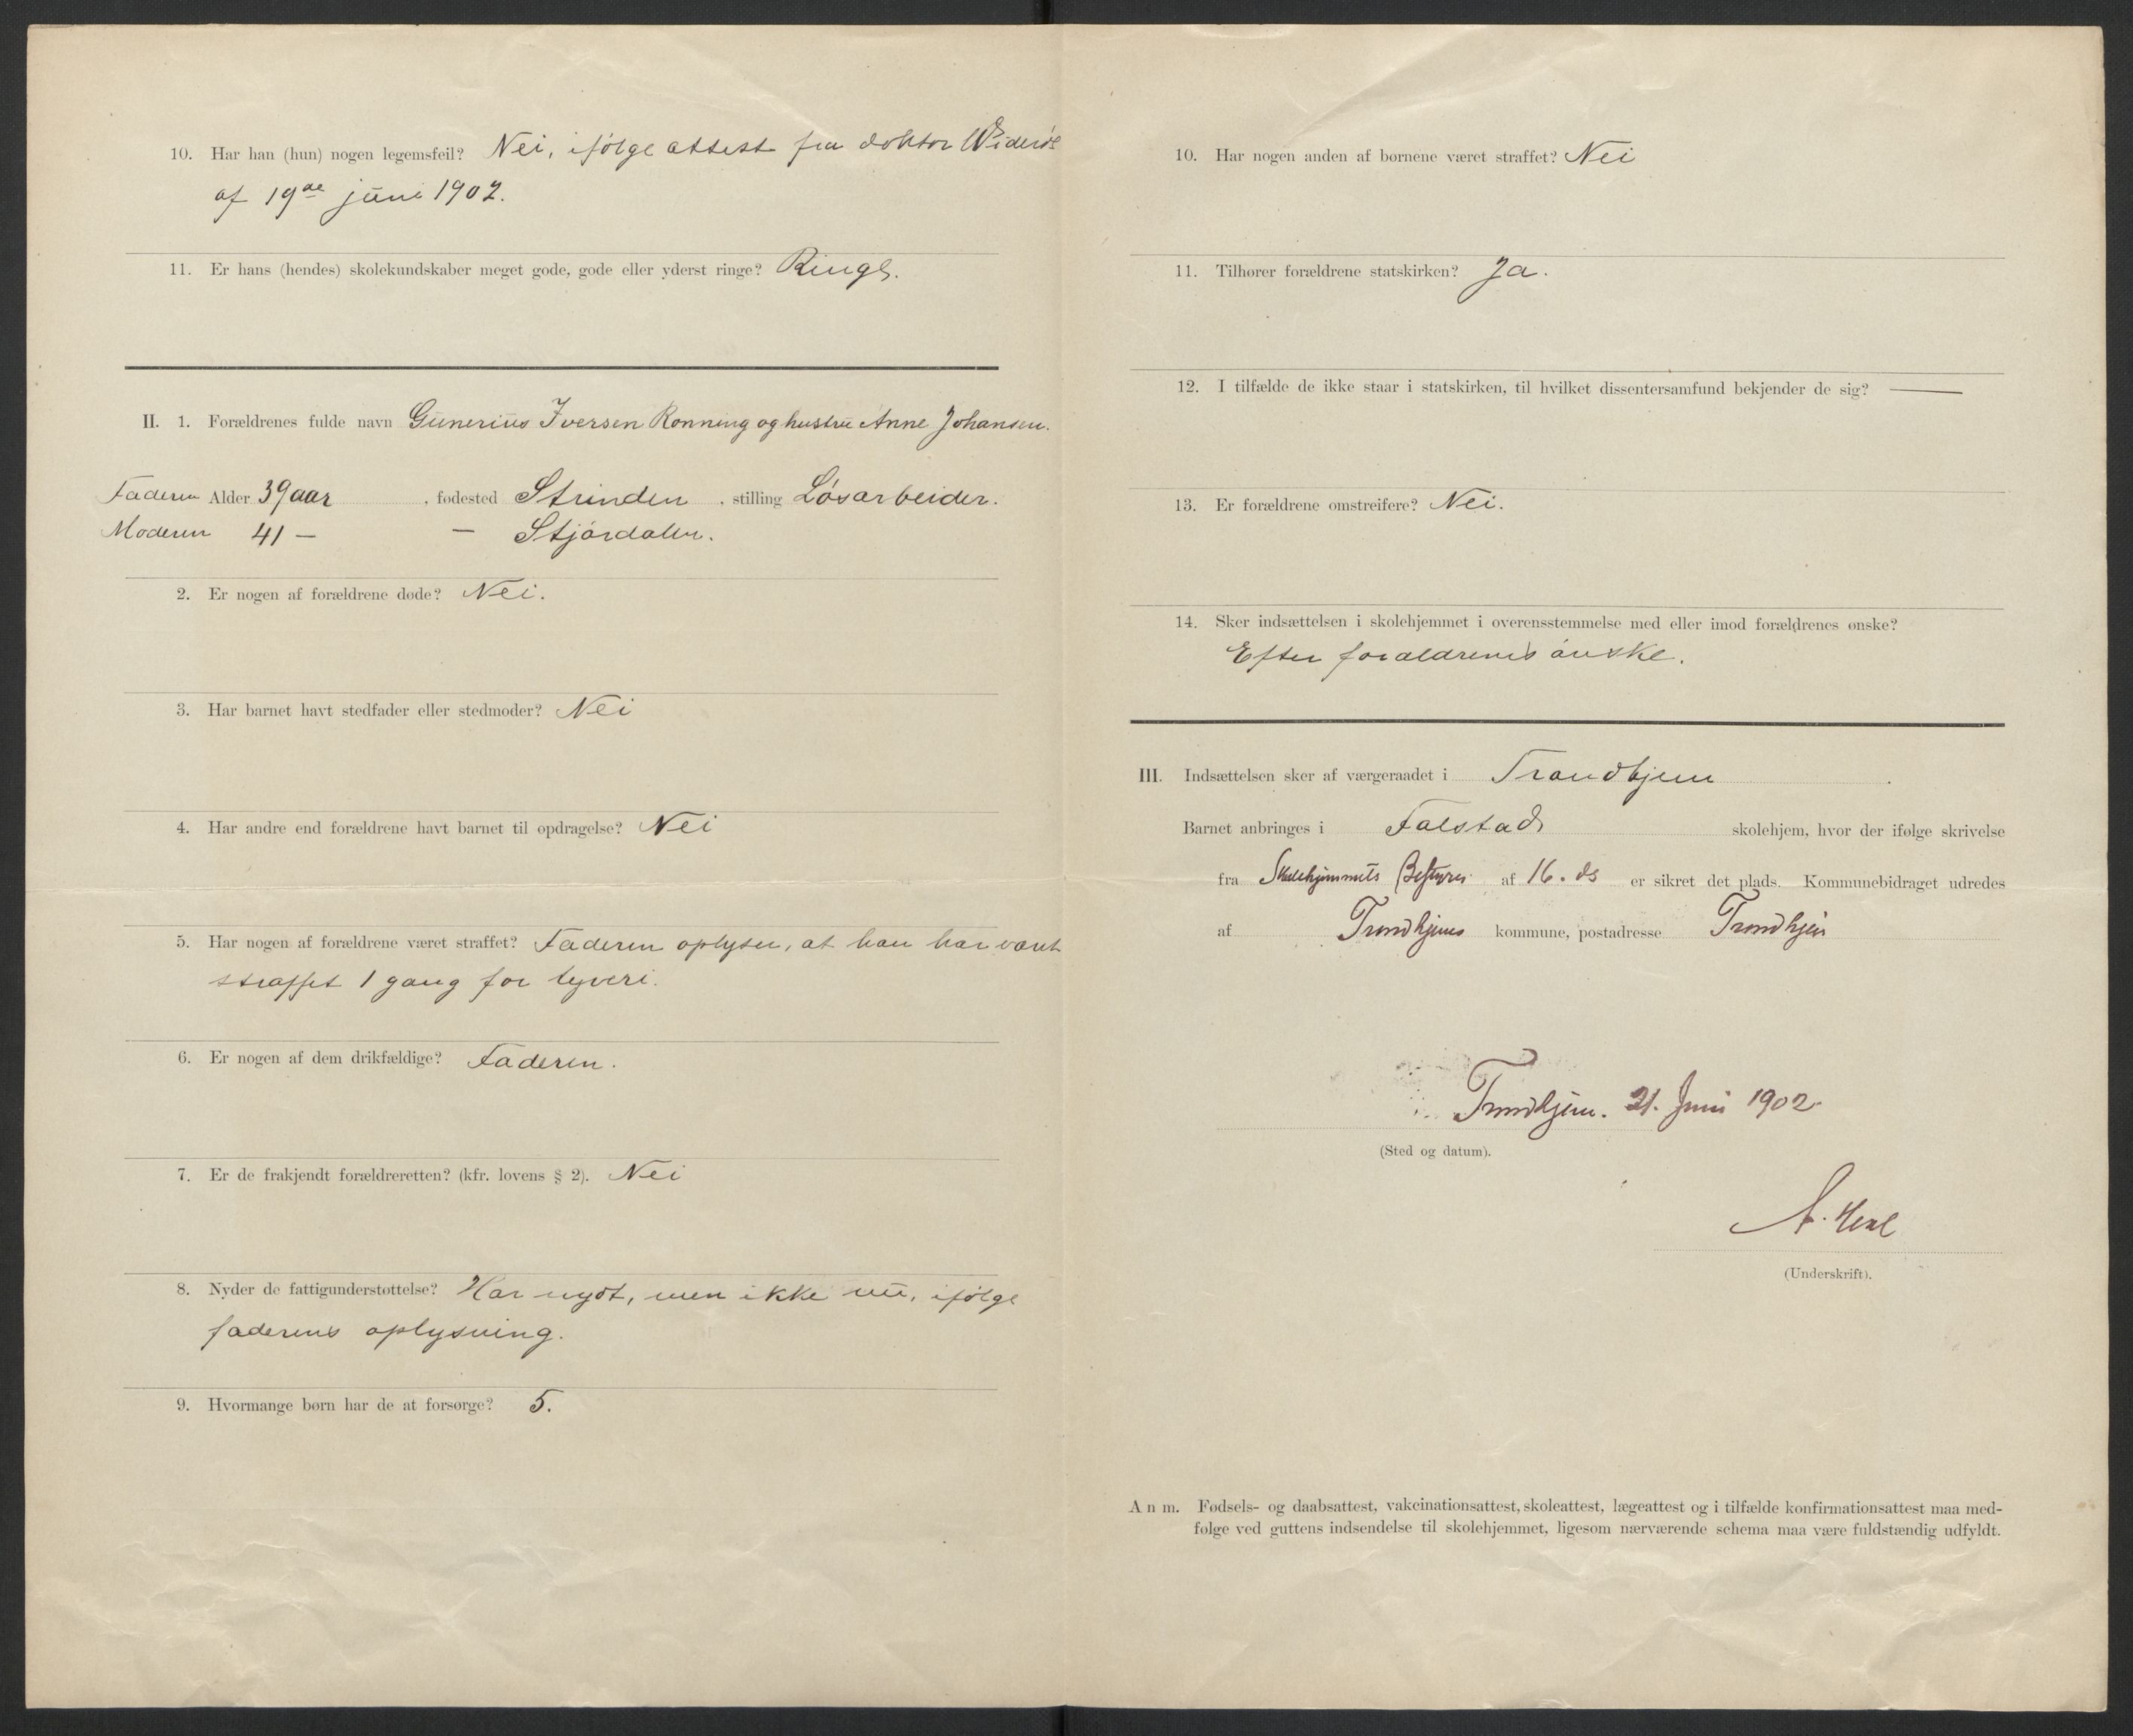 10. Har han (hun) nogen legemsfeil? Nei, ifølge attest fra doktor Widerøe
af 19de juni 1902.
11. Er hans (hendes) skolekundskaber meget gode, gode eller yderst ringe? Ringe.
II. 1. Forældrenes fulde navn Gunerius Iversen Rønning og hustru Anne Johansen.
Faderen Alder 39 aar, fødested Strinden, stilling Løsarbeider.
Moderen 41 — — Stjørdalen.
2. Er nogen af forældrene døde? Nei.
3. Har barnet havt stedfader eller stedmoder? Nei
4. Har andre end forældrene havt barnet til opdragelse? Nei
5. Har nogen af forældrene været straffet? Faderen oplyser, at han har vært
straffet 1 gang for tyveri.
6. Er nogen af dem drikfældige? Faderen.
7. Er de frakjendt forældreretten? (kfr. lovens § 2). Nei
8. Nyder de fattigunderstøttelse? Har nydt, men ikke nu, ifølge
faderens oplysning.
9. Hvormange børn har de at forsørge? 5.
10. Har nogen anden af børnene været straffet? Nei
11. Tilhører forældrene statskirken? Ja.
12. I tilfælde de ikke staar i statskirken, til hvilket dissentersamfund bekjender de sig? —
13. Er forældrene omstreifere? Nei.
14. Sker indsættelsen i skolehjemmet i overensstemmelse med eller imod forældrenes ønske?
Efter forældrenes ønske.
III. Indsættelsen sker af værgeraadet i Trondhjem.
Barnet anbringes i Falstad skolehjem, hvor der ifølge skrivelse
fra Skolehjemmets Bestyrer af 16. ds er sikret det plads. Kommunebidraget udredes
af Trondhjems kommune, postadresse Trondhjem
Trondhjem. 21. Juni 1902
(Sted og datum).
(Underskrift).
Anm. Fødsels- og daabsattest, vakcinationsattest, skoleattest, lægeattest og i tilfælde konfirmationsattest maa med-
følge ved guttens indsendelse til skolehjemmet, ligesom nærværende schema maa være fuldstændig udfyldt.